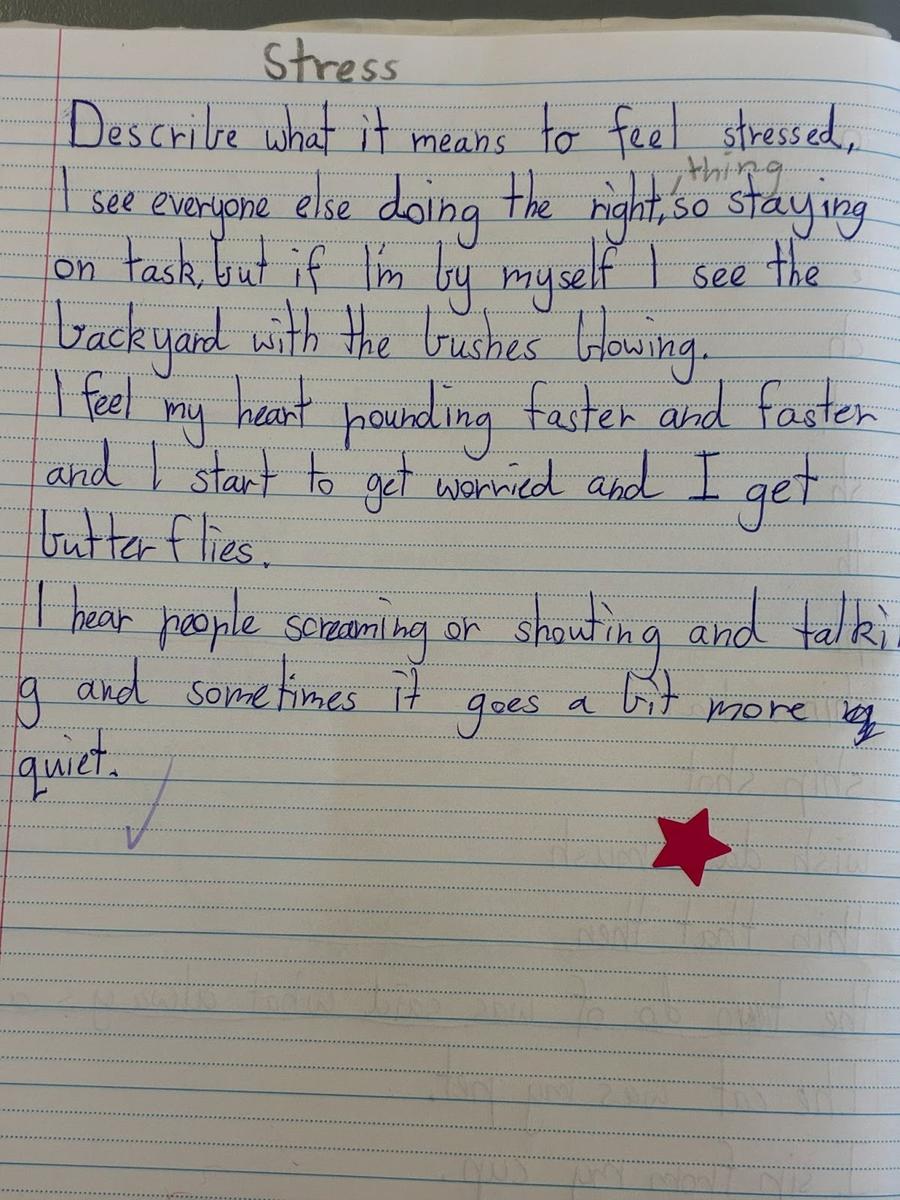 Stress
Describe what it means to feel stressed,
,thing
I see everyone else doing the right, so staying
on task, but if I'm by myself I see the
backyard with the bushes blowing.
I feel my heart pounding faster and faster
and I start to get worried and I get
butterflies.
I hear people screaming or shouting and talki
g and sometimes it goes a bit more
quiet.